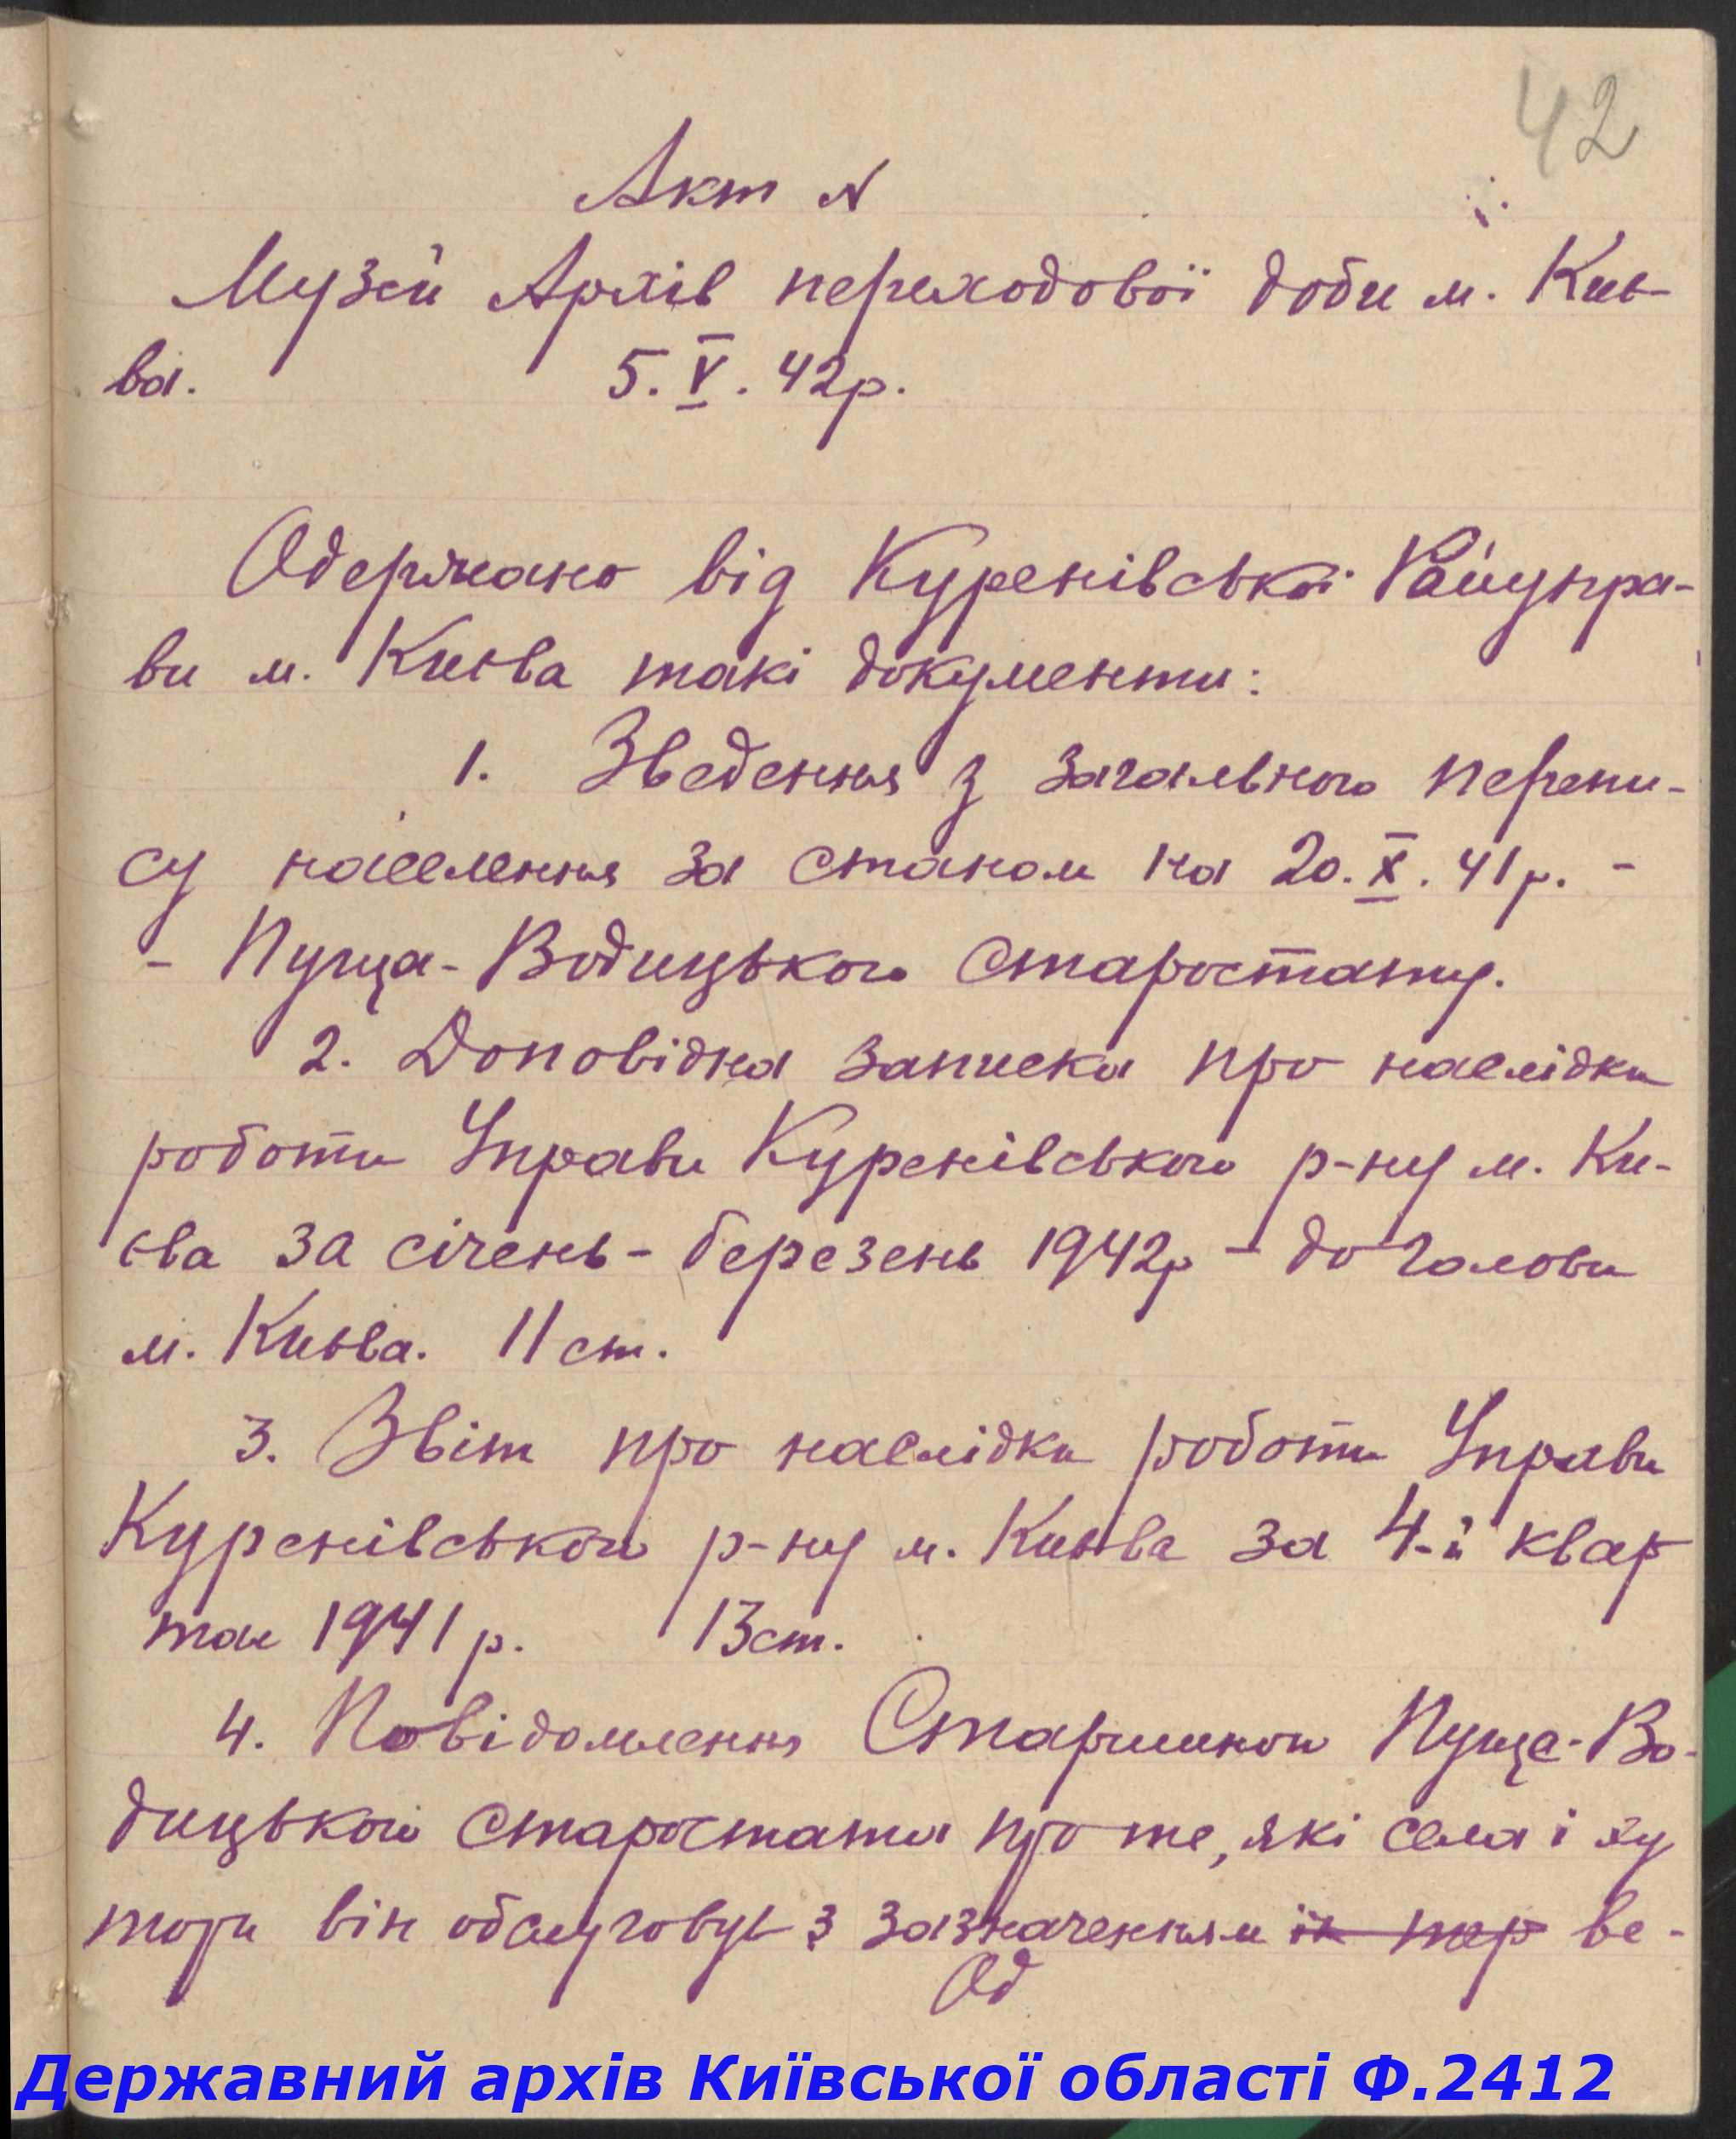 42
Акт N
Музей Архів переходової доби м. Киє-
ва. 5.V.42р.
Одержано від Куренівської Райупра-
ви м. Києва такі документи:
1. Зведення з загального перепи-
су населення за станом на 20.X.41р. -
- Пуща-Водицького Старостату.
2. Доповідна записка про наслідки
роботи Управи Куренівського р-ну м. Ки-
єва за січень - березень 1942р - до голови
м. Києва. 11 ст.
3. Звіт про наслідки роботи Управи
Куренівського р-ну м. Києва за 4-й квар
тал 1941 р. 13 ст.
4. Повідомлення Старшини Пуща-Во-
дицького старостата про те, які села і ху
тори він обслуговує з зазначенням їх тер ве-
Од
Державний архів Київської області Ф.2412